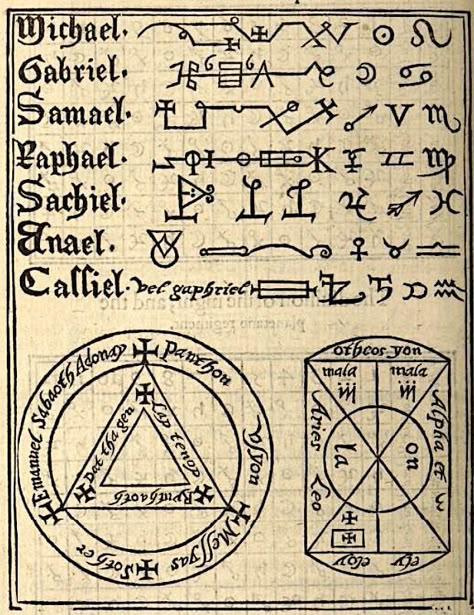 Michael. ☉ ♌
Gabriel. ☽ ♋
Samael. ♂ V ♏
Raphael. ♊ ♍
Sachiel. ♃ ♐ ♓
Anael. ♀ ♉ ♎
Cassiel. vel gaphriel ♄ ♑ ♒
Emanuel Sabaoth Adonay ✠ Panthon
Usyon ✠ Messyas ✠ Sother ✠
Dat tha gen
Lap tenop
othcos yon
mala mala
Aries Leo
la on
Alpha et ω
eloy ely